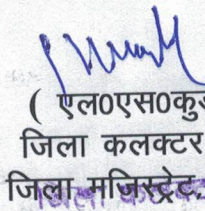 ( एल0एस0कुड
जिला कलक्टर
जिला मजिस्ट्रेट,